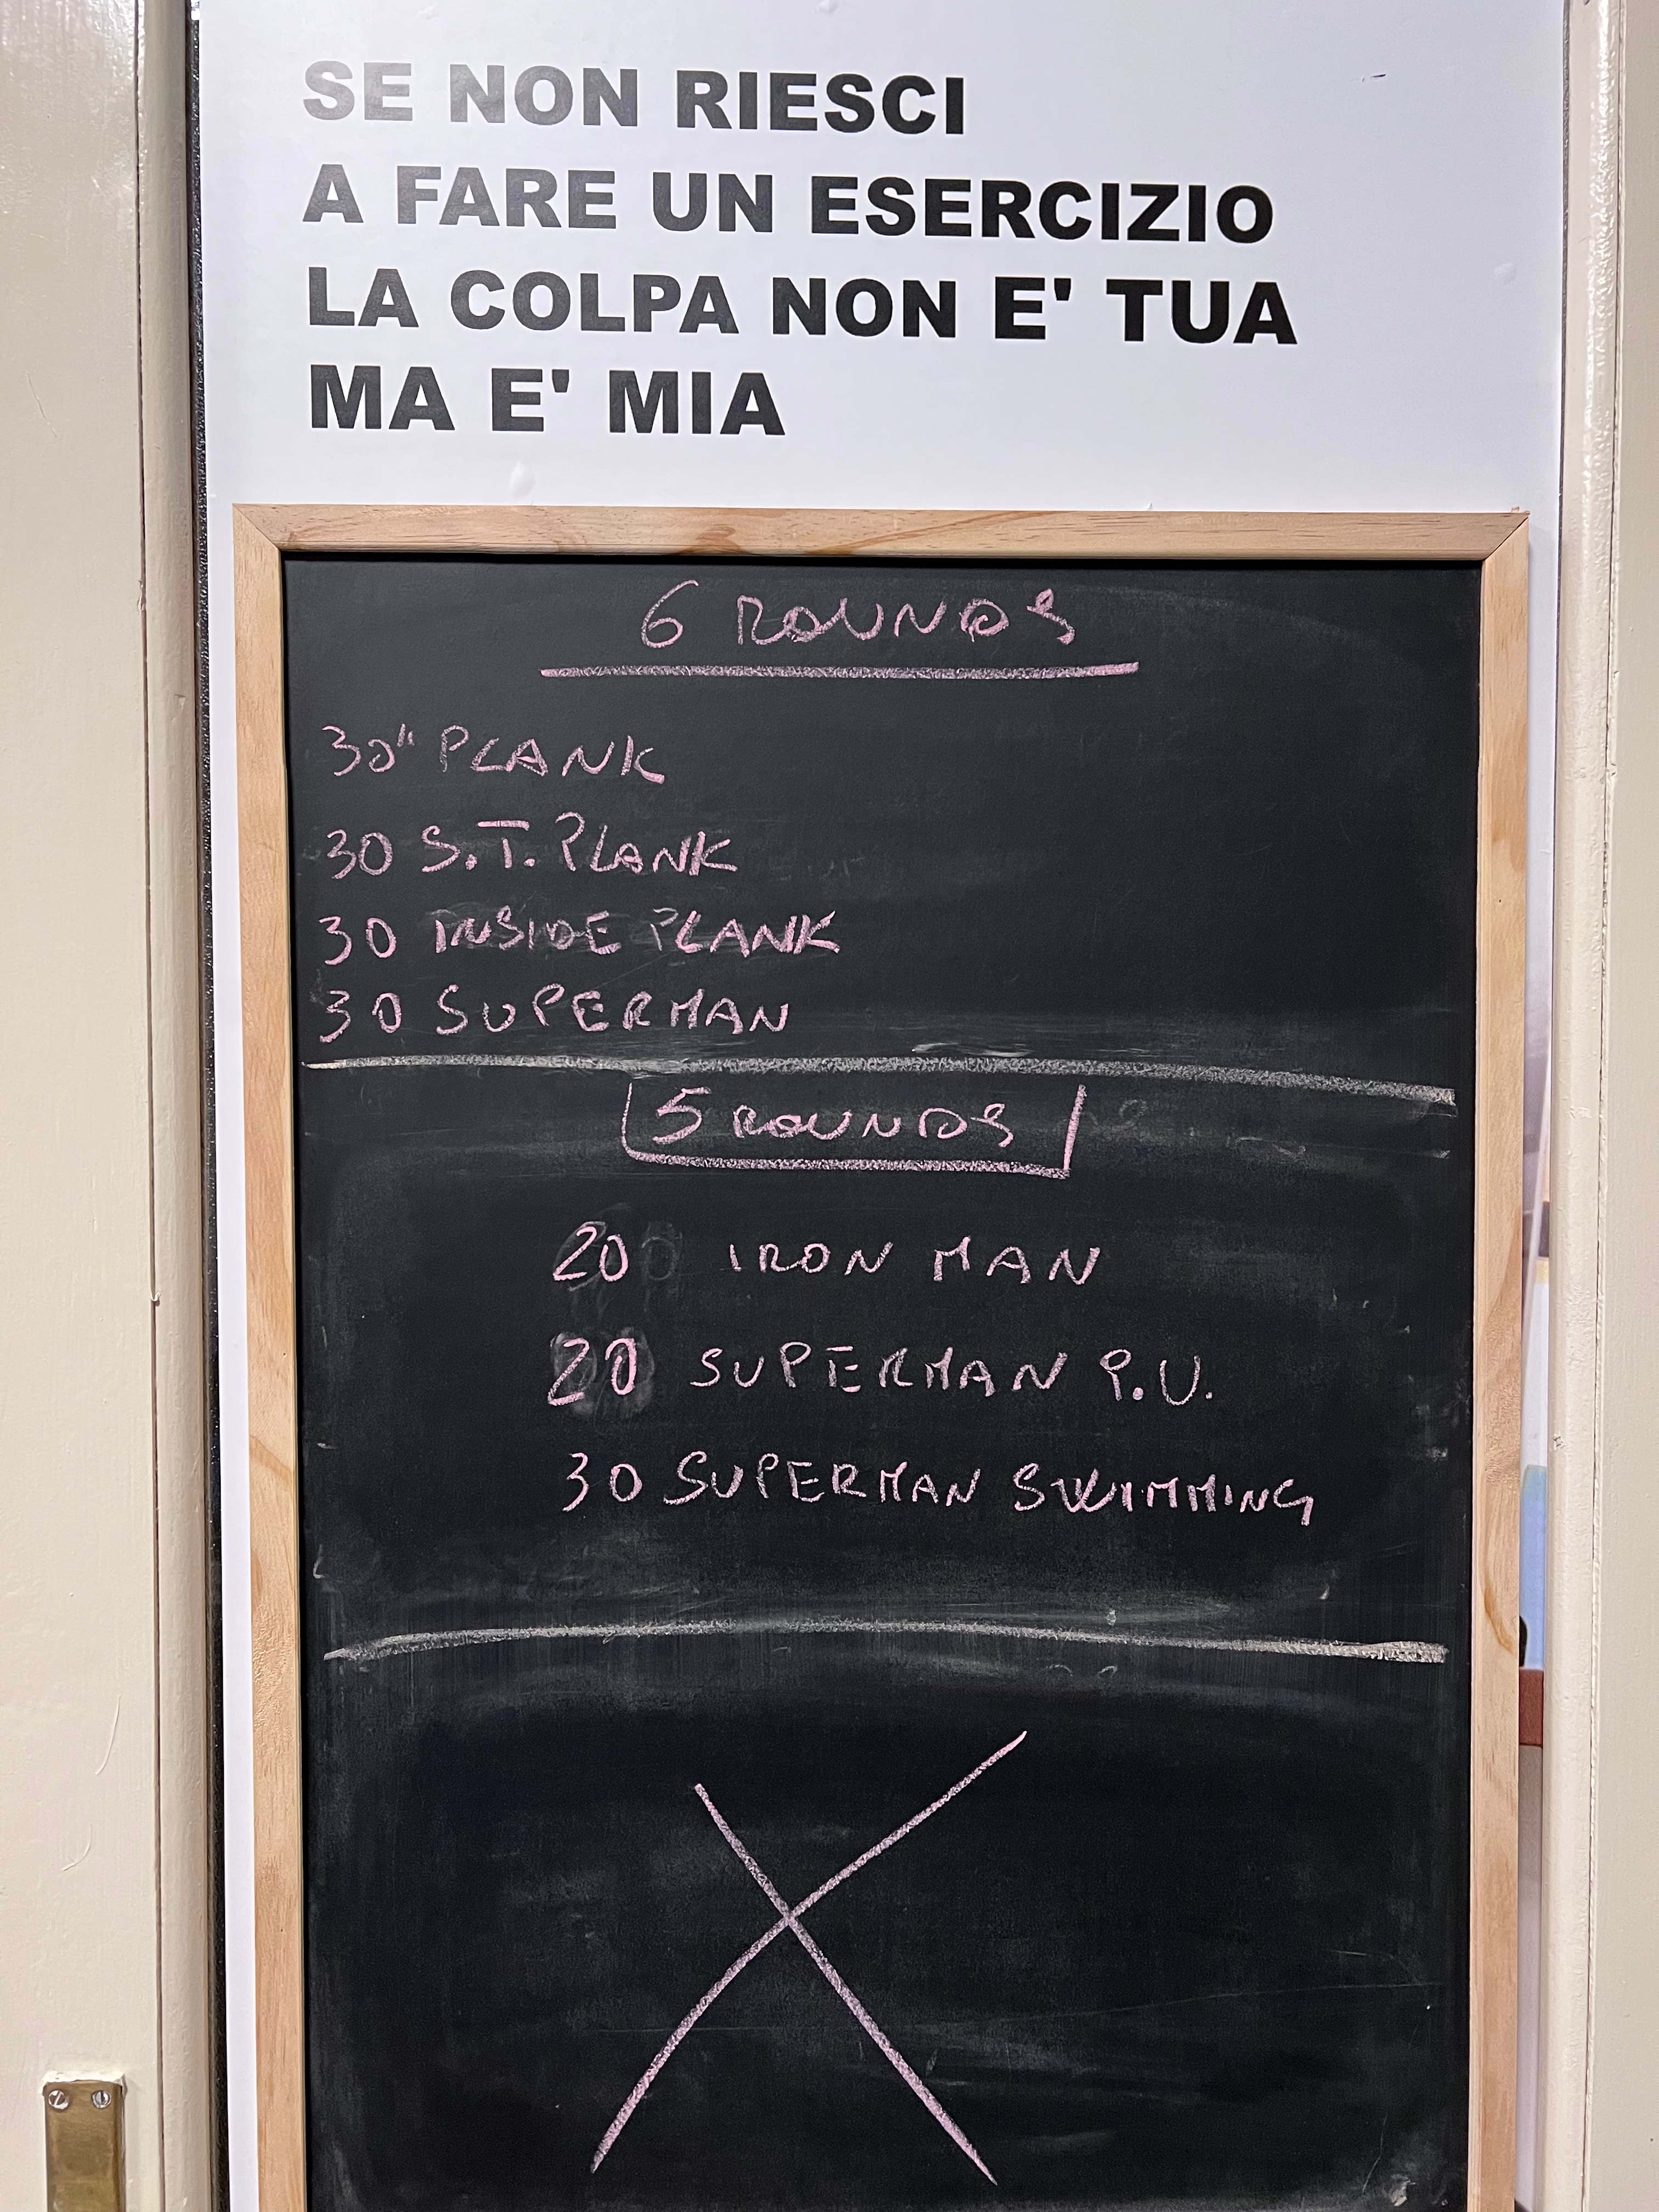 SE NON RIESCI
A FARE UN ESERCIZIO
LA COLPA NON E' TUA
MA E' MIA
6 ROUNDS
30" PLANK
30 S.T. PLANK
30 INSIDE PLANK
30 SUPERMAN
5 ROUNDS
20 IRON MAN
20 SUPERMAN P.U.
30 SUPERMAN SWIMMING